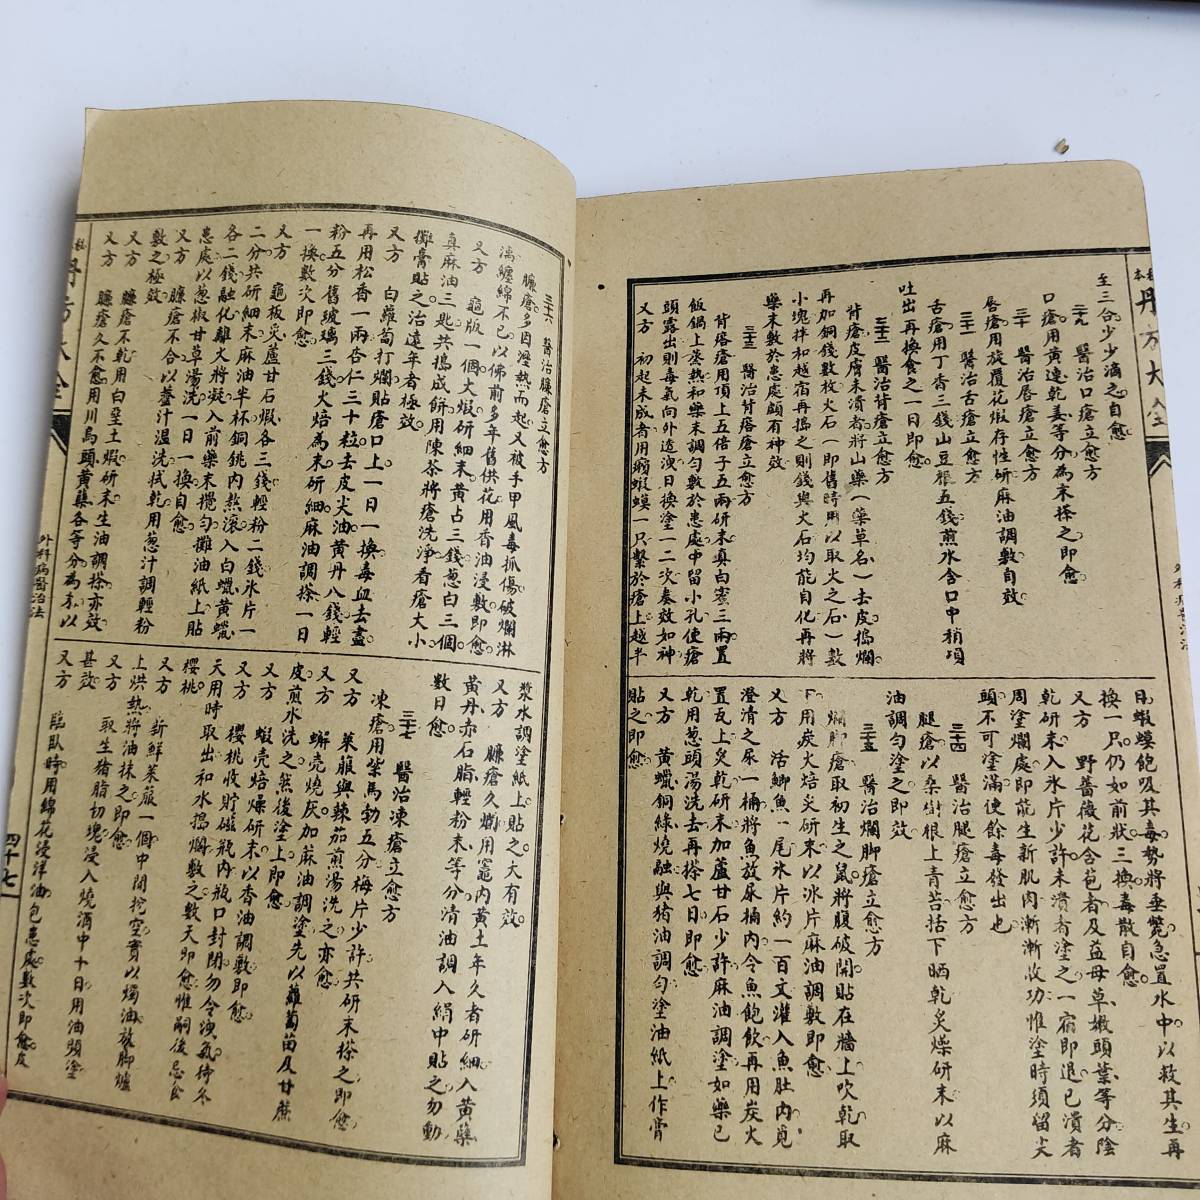 丹方大全
外科病醫治法
至三合少少滴之自愈
二九 醫治口瘡立愈方
口瘡用黄連乾姜等分為末搽之即愈
三十 醫治唇瘡立愈方
唇瘡用旋覆花煆存性研麻油調敷自效
三十一 醫治舌瘡立愈方
舌瘡用丁香三錢山豆根五錢煎水含口中稍項
吐出再換食之一日即愈
三十二 醫治背瘡立愈方
背瘡皮膚未潰者將山藥(藥草名)去皮搗爛
再加銅錢數枚火石(即舊時用以取火之石)數
小塊拌和越宿再搗之則錢與火石均能自化再將
藥末敷於患處頗有神效
三十三 醫治背瘩瘡立愈方
背瘩瘡用頂上五倍子五兩研末真白蜜三兩置
飯鍋上蒸熱和藥末調勻敷於患處中留小孔使瘡
頭露出則毒氣向外透洩日換塗一二次奏效如神
又方 初起未成者用癩蝦蟆一只繫於瘡上越半
日蝦蟆飽吸其毒勢將垂斃急置水中以救其生再
換一只仍如前狀三換毒散自愈
又方 野薔薇花含苞者及益母草嫩頭葉等分陰
乾研末入氷片少許未潰者塗之一宿即退已潰者
周塗爛處即能生新肌肉漸漸收功惟塗時須留尖
頭不可塗滿使餘毒發出也
三十四 醫治腿瘡立愈方
腿瘡以桑樹根上青苔括下晒乾炙燥研末以麻
油調勻塗之即效
三十五 醫治爛脚瘡立愈方
爛脚瘡取初生之鼠將腹破開貼在牆上吹乾取
下用炭火焙炙研末以冰片麻油調敷即愈
又方 活鯽魚一尾氷片約一百文灌入魚肚内覓
澄清之尿一桶將魚放尿桶内令魚飽飲再用炭火
置瓦上炙乾研末加蘆甘石少許麻油調塗如藥已
乾用葱頭湯洗去再搽七日即愈
又方 黄蠟銅綠燒融與猪油調勻塗油紙上作膏
貼之即愈
三十六 醫治臁瘡立愈方
臁瘡多因溼熱而起又被手甲風毒抓傷破爛淋
漓纏綿不已以佛前多年舊供花用香油浸敷即愈
又方 龜版一個火煆研細末黄占三錢葱白三個
真麻油三匙共搗成餅用陳茶將瘡洗淨看瘡大小
攤膏貼之治遠年者極效
又方 白蘿蔔打爛貼瘡口上一日一換毒血去盡
再用松香一兩杏仁三十粒去皮尖油黄丹八錢輕
粉五分舊玻璃三錢火焙為末研細麻油調搽一日
一換數次即愈
又方 龜板炙蘆甘石煆各三錢輕粉二錢氷片一
二分共研細末麻油半杯銅銚内熬滚入白蠟黄蠟
各二錢融化離火將凝入前藥末攪勻攤油紙上貼
患處以葱椒甘草湯洗一日一換自愈
又方 臁瘡不合以虀汁温洗拭乾用葱汁調輕粉
敷之極效
又方 臁瘡不乾用白堊土煆研末生油調搽亦效
又方 臁瘡久不愈用川烏頭黄蘗各等分為末以
漿水調塗紙上貼之大有效
又方 臁瘡久爛用竈内黄土年久者研細入黄蘗
黄丹赤石脂輕粉末等分清油調入絹中貼之勿動
數日愈
三十七 醫治凍瘡立愈方
凍瘡用紫馬勃五分梅片少許共研末搽之即愈
又方 萊菔與辣茄煎湯洗之亦愈
又方 蠏壳燒灰加蔴油調塗先以蘿蔔苗及甘蔗
皮煎水洗之然後塗上即愈
又方 蝦壳焙燥研末以香油調敷即愈
又方 櫻桃收貯磁瓶内瓶口封閉勿令洩氣待冬
天用時取出和水搗爛敷之數天即愈惟嗣後忌食
櫻桃
又方 新鮮萊菔一個中間挖空實以燭油放脚爐
上烘熱將油抹之即愈
又方 取生猪脂切塊浸入燒酒中十日用油頭塗
甚效
又方 臨臥時用綿花浸洋油包患處數次即愈皮
外科病醫治法
四十七